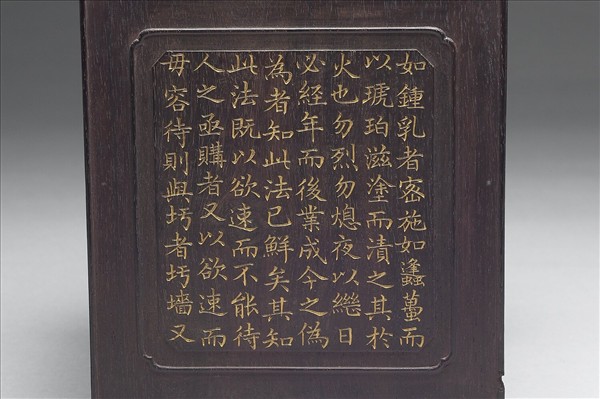 如鍾乳者密施如蠭蠆而
以琥珀滋塗而漬之其於
火也勿烈勿熄夜以繼日
必經年而後業成今之偽
為者知此法已鮮矣其知
此法既以欲速而不能待
人之亟購者又以欲速而
毋容待則與圬者圬墻又